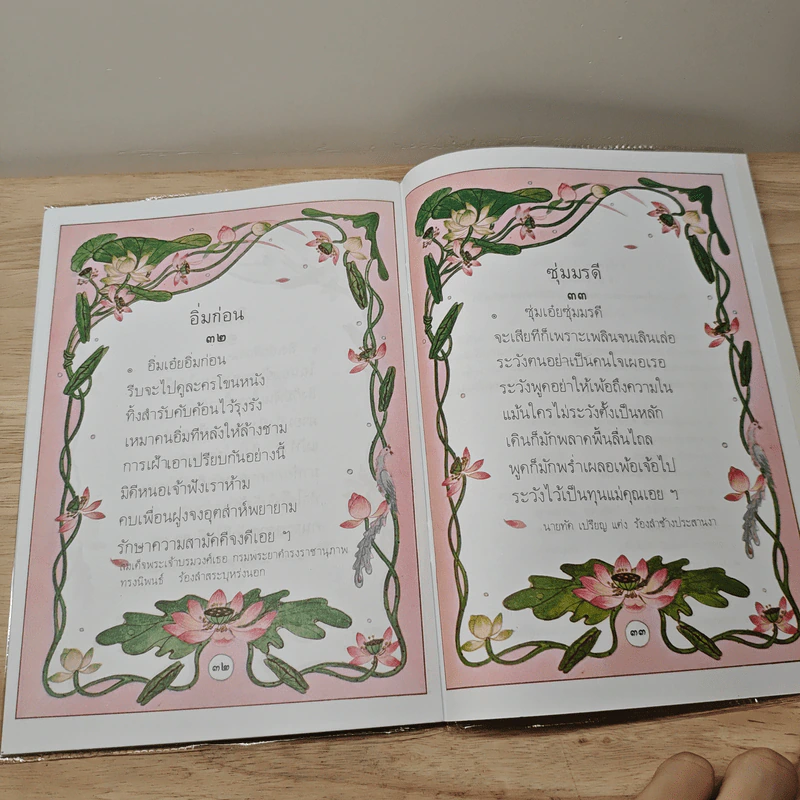 อิ่มก่อน
๓๒
๏ อิ่มเอ๋ยอิ่มก่อน
รีบจะไปดูละครโขนหนัง
ทิ้งสำรับคับค้อนไว้รุงรัง
เหมาคนอิ่มทีหลังให้ล้างชาม
การเฝ้าเอาเปรียบกันอย่างนี้
มิดีหนอเจ้าฟังเราห้าม
คบเพื่อนฝูงจงอุตส่าห์พยายาม
รักษาความสามัคคีจงดีเอย ฯ
สมเด็จพระเจ้าบรมวงศ์เธอ กรมพระยาดำรงราชานุภาพ
ทรงนิพนธ์ ร้องลำสระบุหร่งนอก
๓๒
ซุ่มมรดี
๓๓
๏ ซุ่มเอ๋ยซุ่มมรดี
จะเสียทีก็เพราะเพลินจนเลินเล่อ
ระวังตนอย่าเป็นคนใจเผอเรอ
ระวังพูดอย่าให้เพ้อถึงความใน
แม้นใครไม่ระวังตั้งเป็นหลัก
เดินก็มักพลาดพื้นลื่นไถล
พูดก็มักพร่ำเผลอเพ้อเจ้อไป
ระวังไว้เป็นทุนแม่คุณเอย ฯ
นายทัด เปรียญ แต่ง ร้องลำช้างประสานงา
๓๓